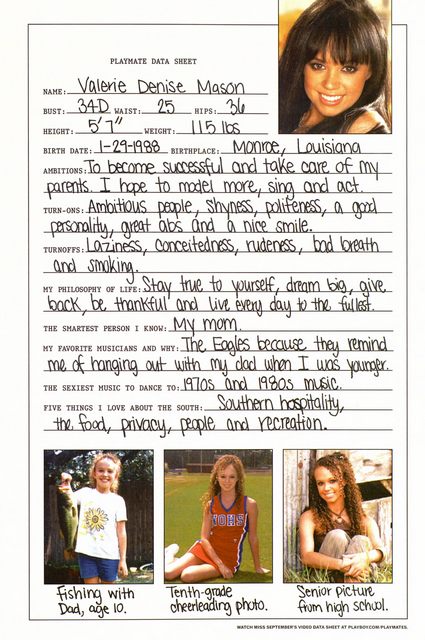 PLAYMATE DATA SHEET
NAME: Valerie Denise Mason
BUST: 34D WAIST: 25 HIPS: 36
HEIGHT: 5'7" WEIGHT: 115 lbs
BIRTH DATE: 1-29-1988 BIRTHPLACE: Monroe, Louisiana
AMBITIONS: To become successful and take care of my
parents. I hope to model more, sing and act.
TURN-ONS: Ambitious people, shyness, politeness, a good
personality, great abs and a nice smile.
TURNOFFS: Laziness, conceitedness, rudeness, bad breath
and smoking.
MY PHILOSOPHY OF LIFE: Stay true to yourself, dream big, give
back, be thankful and live every day to the fullest.
THE SMARTEST PERSON I KNOW: My mom.
MY FAVORITE MUSICIANS AND WHY: The Eagles because they remind
me of hanging out with my dad when I was younger.
THE SEXIEST MUSIC TO DANCE TO: 1970s and 1980s music.
FIVE THINGS I LOVE ABOUT THE SOUTH: Southern hospitality,
the food, privacy, people and recreation.
WOHS
Fishing with
Dad, age 10.
Tenth-grade
cheerleading photo.
Senior picture
from high school.
WATCH MISS SEPTEMBER'S VIDEO DATA SHEET AT PLAYBOY.COM/PLAYMATES.